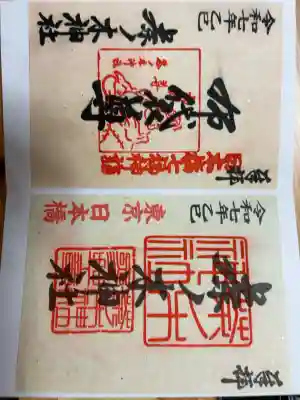 奉拝
日本橋七福神詣
布袋尊
茶ノ木神社
令和七年乙巳
奉拝
茶ノ木神社
東京日本橋
令和七年乙巳